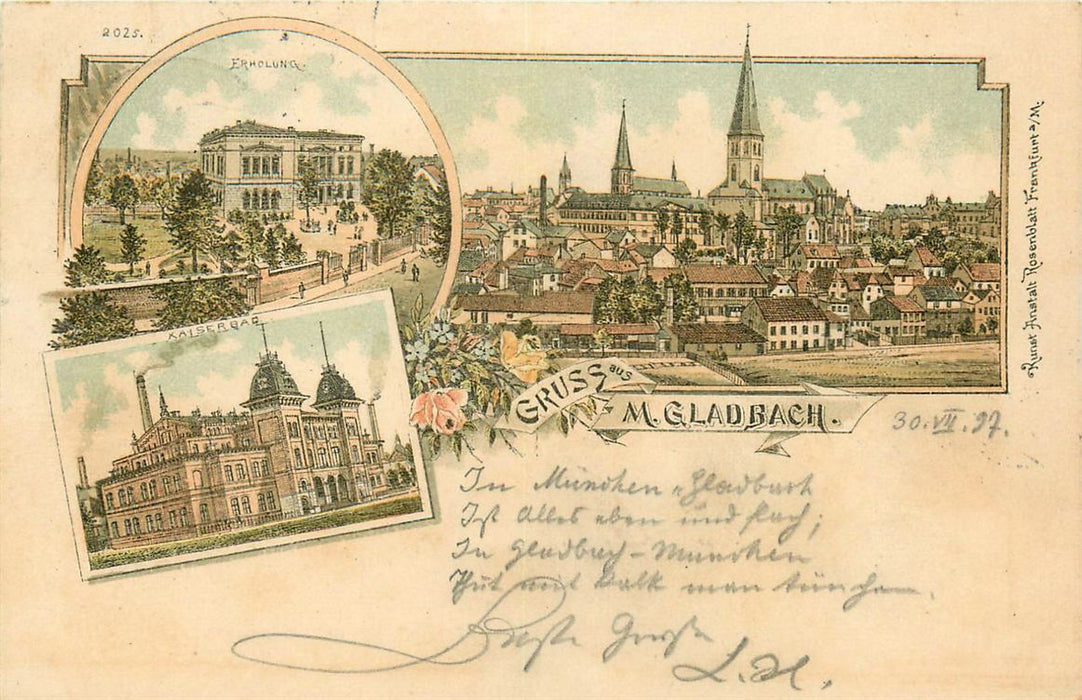 2025.
ERHOLUNG.
KAISERBAD
GRUSS aus
M. GLADBACH.
Kunst Anstalt Rosenblatt Frankfurt a/M.
30. VII. 97.
In München-Gladbach
Ist Alles eben und flach;
In Gladbach-München
Thut mit Kalk man tünchen.
Beste Grüße
L. H.